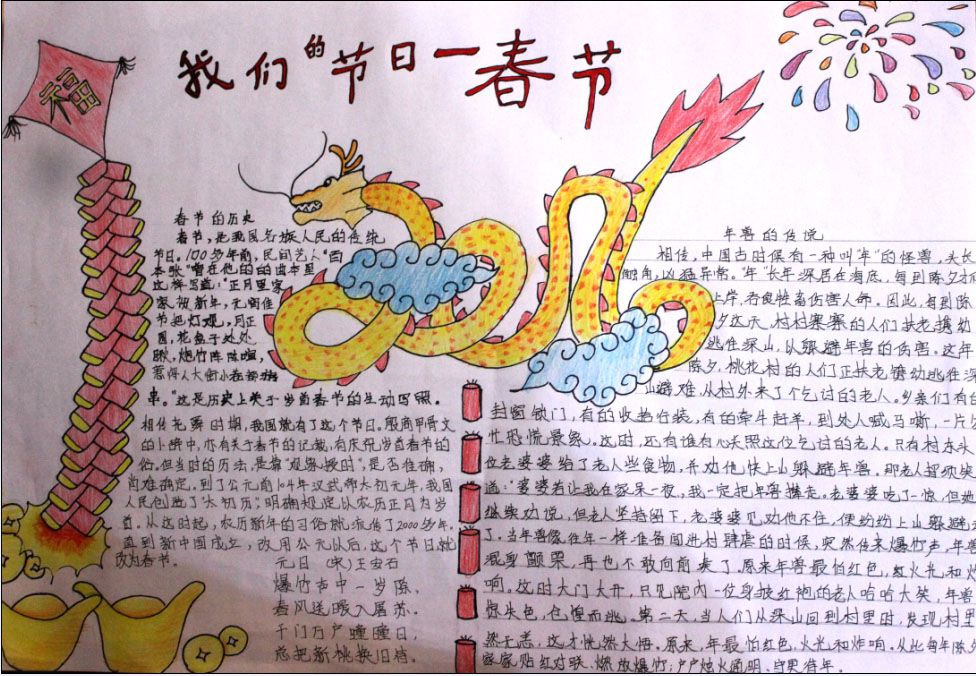 我们的节日一春节
福
春节的历史
春节，是我国各族人民的传统
节日。100多年前，民间艺人"百
本张"曾在他的的曲本里
这样写道："正月里家
家被新年，元宵佳
节把灯观，月正
圆，花盒子处处
瞅，炮竹阵阵喧，
惹得人大街小巷
串。"这是历史上关于岁首春节的生动写照。
相传尧舜时期，我国就有了这个节日，殷商甲骨文
的卜辞中，亦有关于春节的记载，有庆祝岁首春节的
俗，但当时的历法，是靠"观象授时"，是否准确，
尚难确定。到了公元前104年汉武帝太初元年，我国
人民创造了"太初历"，明确规定以农历正月为岁
首。从这时起，农历新年的习俗就流传了2000多年。
直到新中国成立，改用公元以后，这个节日就
改为春节。
元日 (宋)王安石
爆竹声中一岁除，
春风送暖入屠苏。
千门万户曈曈日，
总把新桃换旧符。
年兽的传说
相传，中国古时候有一种叫"年"的怪兽，头长
触角，凶猛异常。"年"长年深居在海底，每到除夕才
上岸，吞食牲畜伤害人命。因此，每到除
夕这天，村村寨寨的人们扶老携幼
逃往深山，以躲避年兽的伤害。这年
除夕，桃花村的人们正扶老携幼逃往深
山避难，从村外来了个乞讨的老人。乡亲们有的
封窗锁门，有的收拾行装，有的牵牛赶羊，到处人喊马嘶，一片
忙恐慌景象。这时，还有谁有心关照这位乞讨的老人。只有村东头
位老婆婆给了老人些食物，并劝他快上山躲避年兽。那老人捋须笑
道："婆婆若让我在家呆一夜，我一定把年兽撵走。老婆婆吃了一惊，但她
继续劝说，但老人坚持留下，老婆婆见劝他不住，便纷纷上山躲避
了。当年兽像往年一样准备闯进村肆虐的时候，突然传来爆竹声，年兽
混身颤栗，再也不敢向前走了，原来年兽最怕红色，红火光和炸
响。这时大门大开，只见院内一位身披红袍的老人哈哈大笑，年兽
惊失色，仓惶而跳。第二天，当人们从深山回到村里时，发现村里
然无恙，这才恍然大悟。原来，年最怕红色，火光和炸响。从此每年除夕
家家贴红对联、燃放爆竹；户户烛火通明、守更待年。